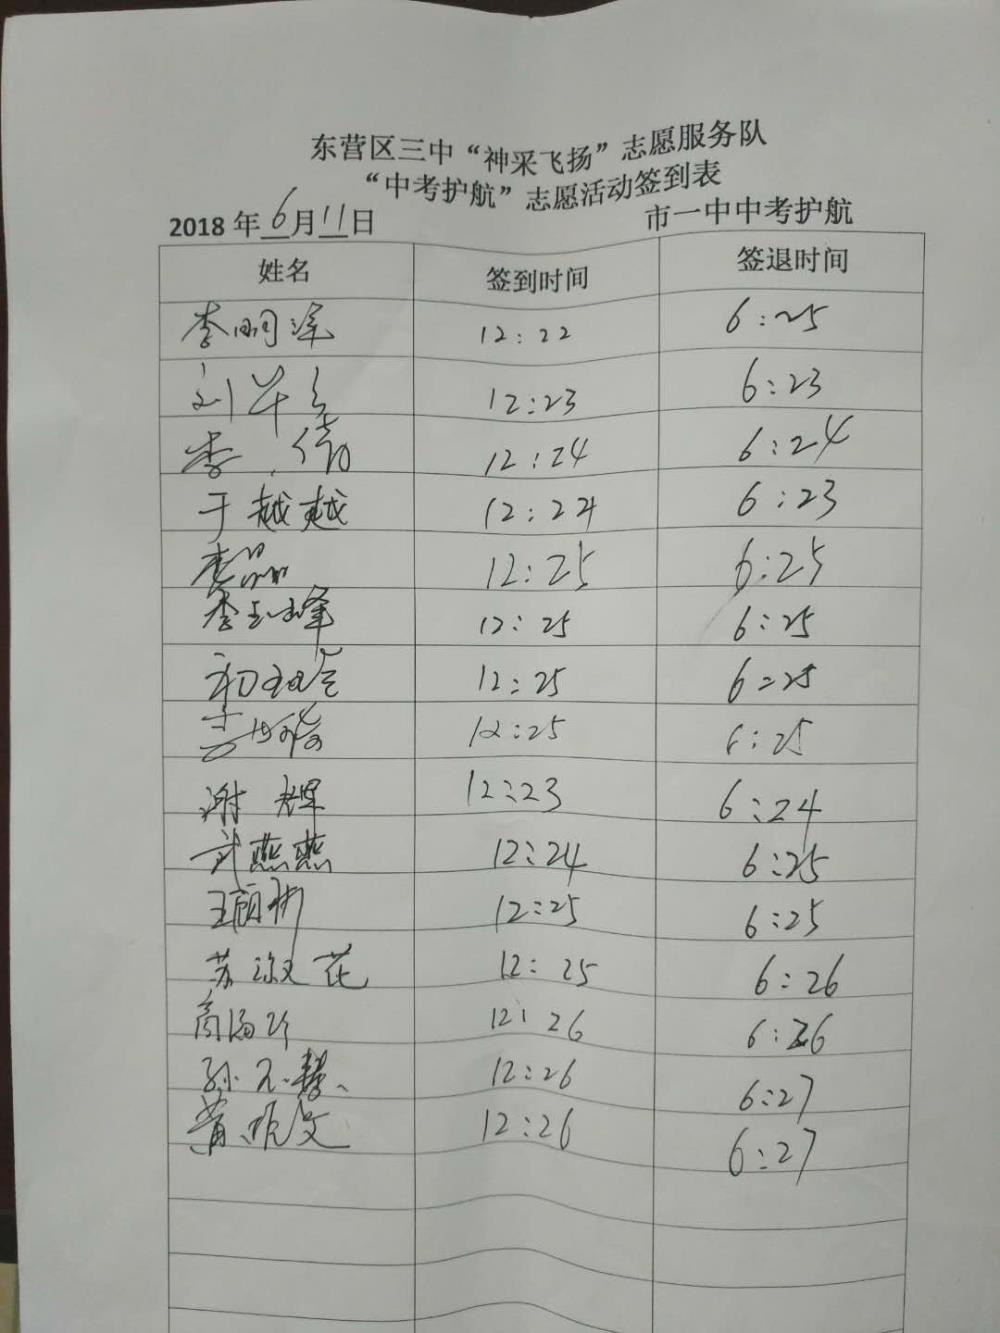 东营区三中“神采飞扬”志愿服务队
“中考护航”志愿活动签到表
2018 年 6 月 11 日 市一中中考护航
姓名 签到时间 签退时间
李明泽 12:22 6:25
刘 12:23 6:23
李倩 12:24 6:24
于越越 12:24 6:23
李晶 12:25 6:25
李玉峰 12:25 6:25
12:25 6:25
12:25 6:25
谢辉 12:23 6:24
武燕燕 12:24 6:25
王颐彬 12:25 6:25
苏淑花 12:25 6:26
商海玲 12:26 6:26
孙元慧 12:26 6:27
黄顺文 12:26 6:27